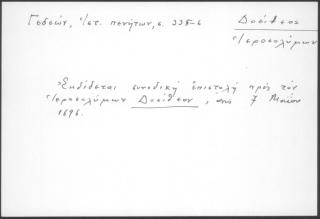 Γεδεών, Ἱστ. πενήτων, σ. 335-6
Δοσίθεος
Ἱεροσολύμων
Ἐκδίδεται συνοδικὴ ἐπιστολὴ πρὸς τὸν
Ἱεροσολύμων Δοσίθεον, ἀπὸ 7 Μαΐου
1696.